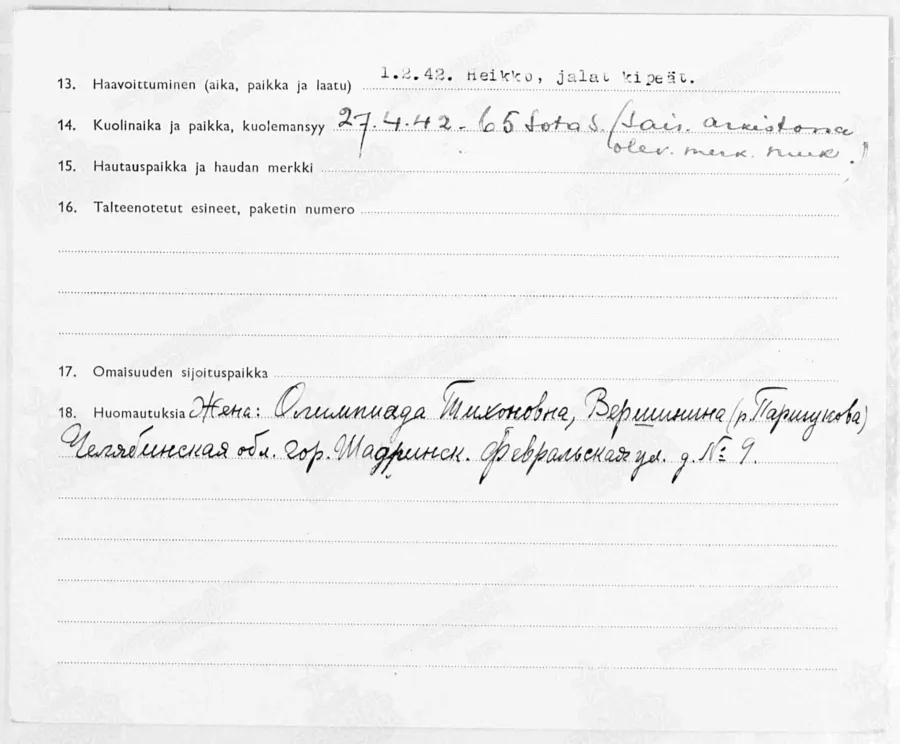 13. Haavoittuminen (aika, paikka ja laatu) 1.2.42. Heikko, jalat kipeät.
14. Kuolinaika ja paikka, kuolemansyy 27.4.42. 65 Sotas. (Sair. arkistossa
olev. merk. muk.)
15. Hautauspaikka ja haudan merkki
16. Talteenotetut esineet, paketin numero
17. Omaisuuden sijoituspaikka
18. Huomautuksia Жена: Олимпиада Тихоновна, Вершинина (р. Паршукова)
Челябинская обл. гор. Шадринск. Февральская ул. д. № 9.